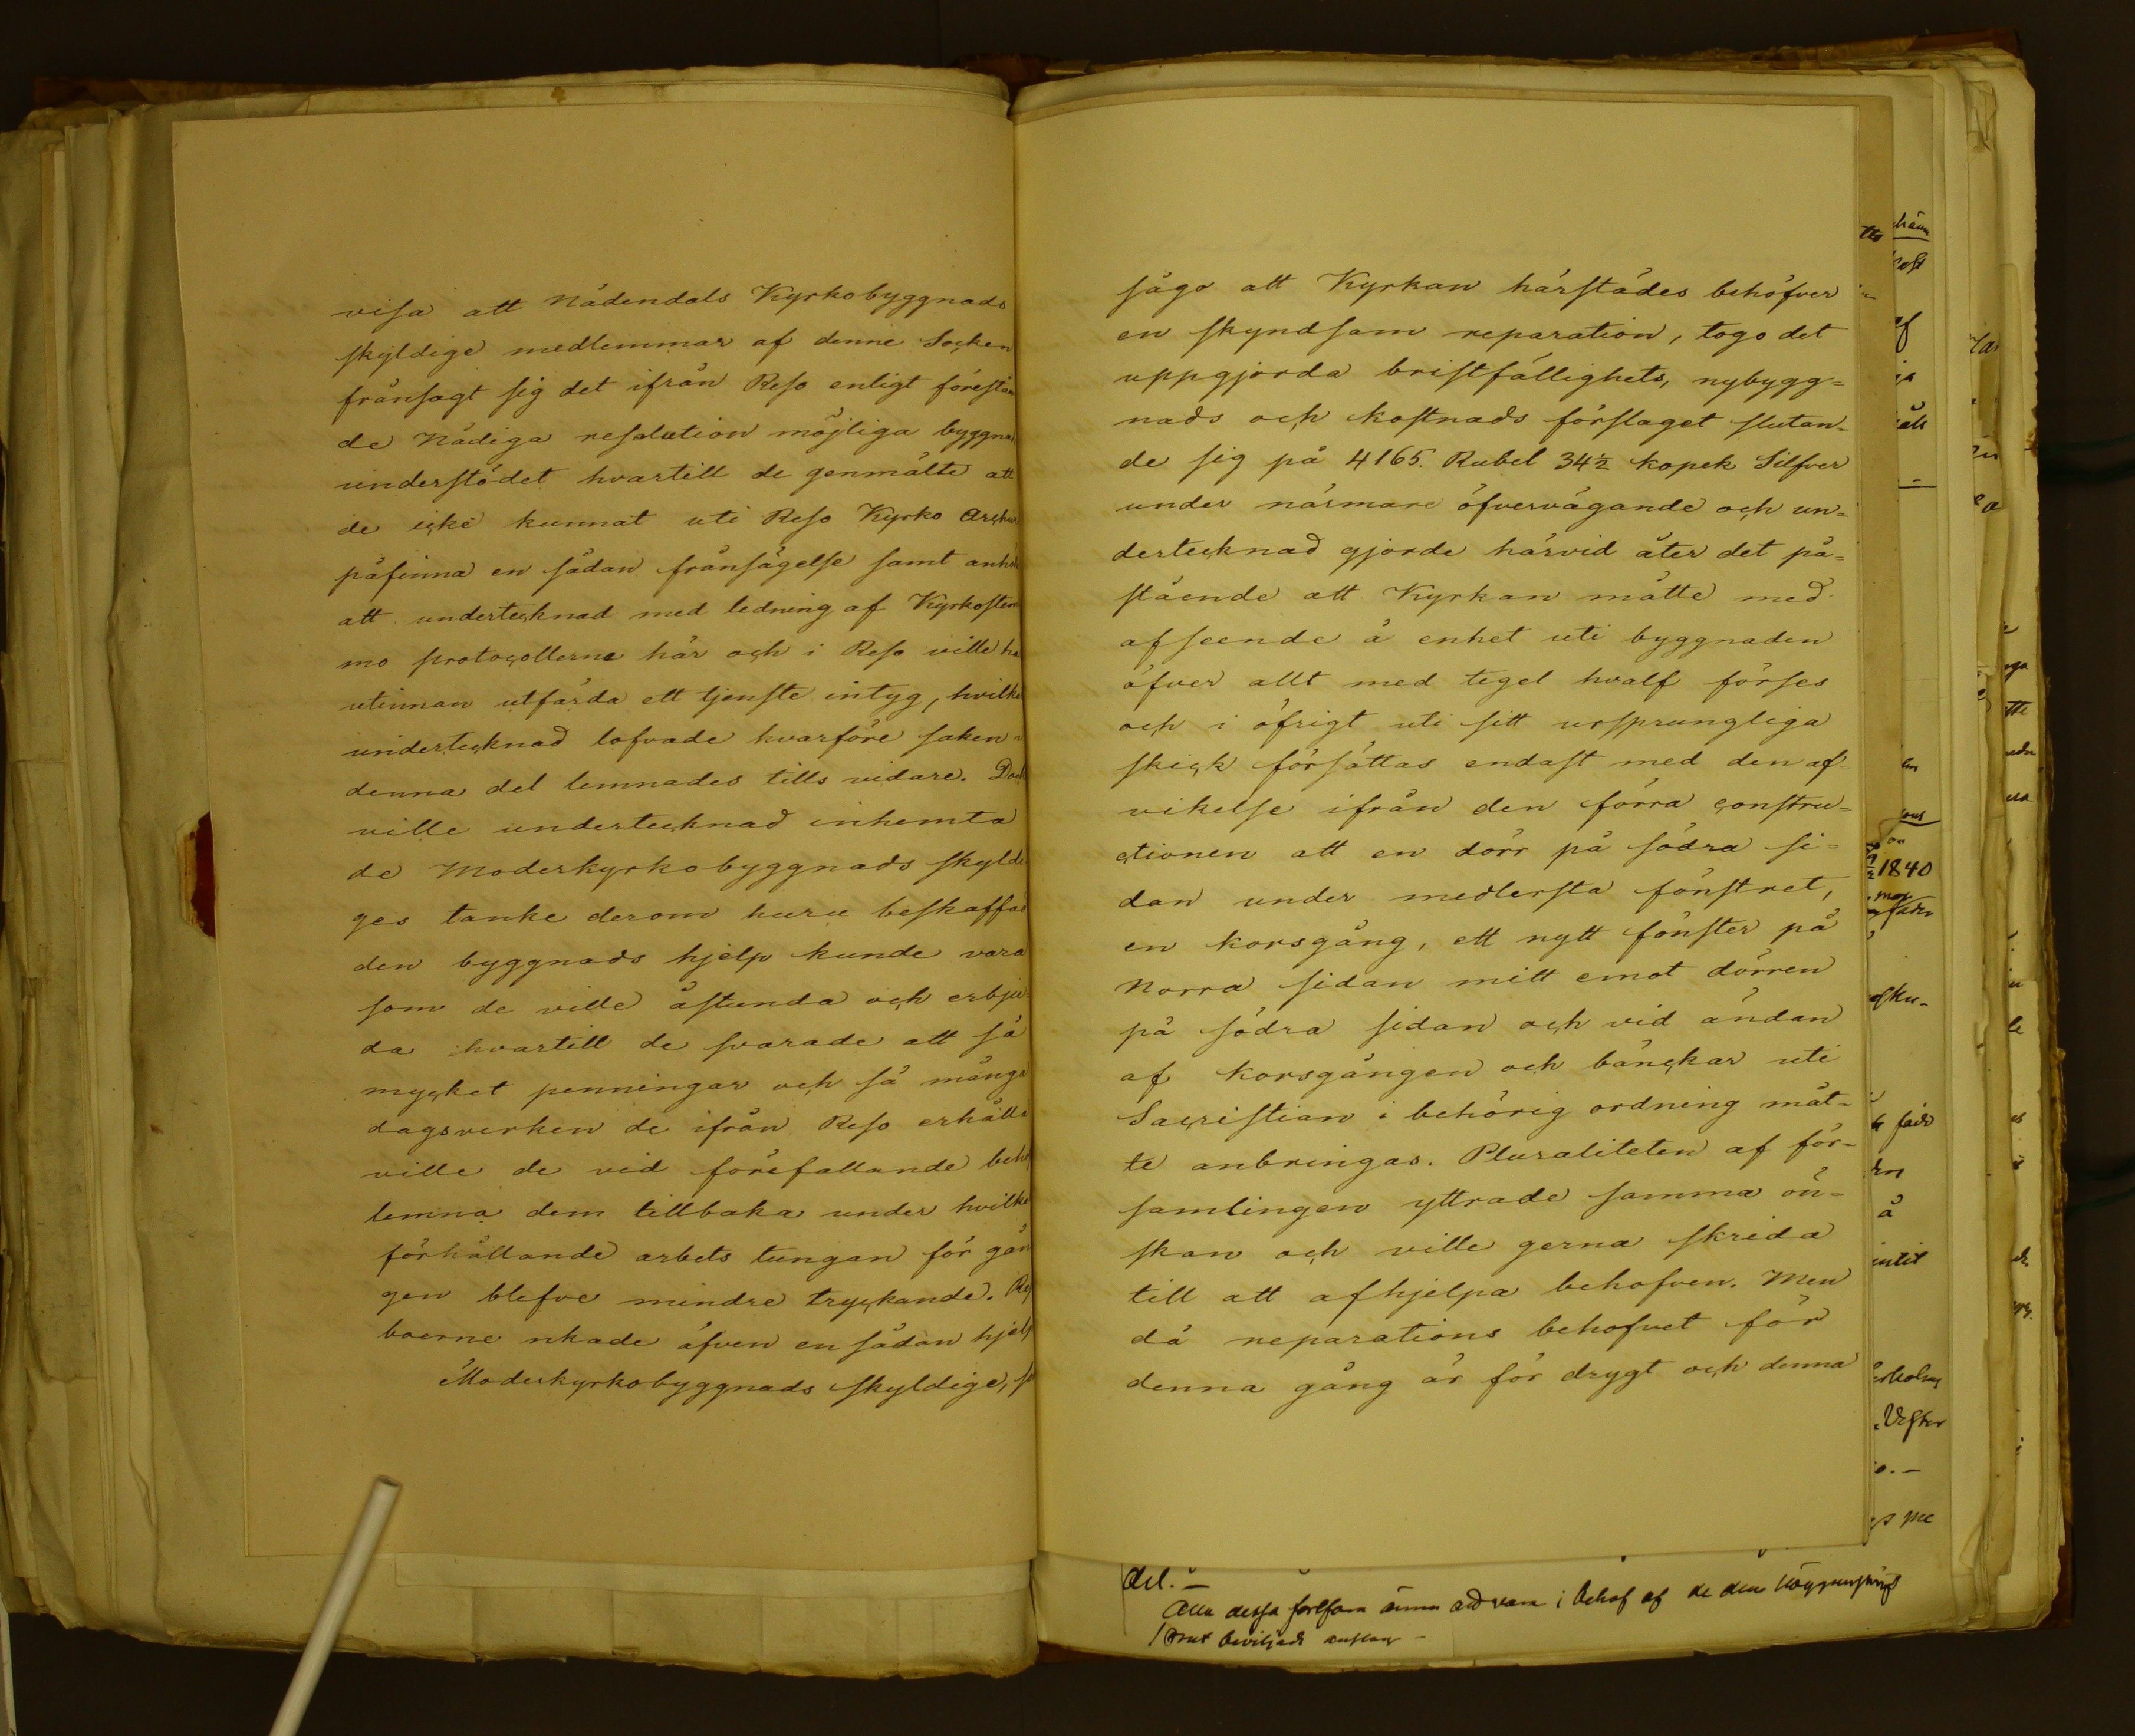 visa att Nådendals Kyrkobyggnads
skyldige medlemmar af denne Socken
frånsagt sig det ifrån Reso enligt förestån
de Nådiga resolution möjliga byggna
understödet hvartill de genmälte att
de icke kunnat uti Reso Kyrko Archiv
påfinna en sådan frånsägelse samt anhö
att undertecknad med ledning af Kyrkostem
mo protocollerne här och i Reso ville ha
utinnan utfärda ett tjenste intyg, hvilke
undertecknad lofvade hvarföre saken
denna del lemnades tills vidare. Dock
ville undertecknad inhemta
de Moderkyrkobyggnads skyldi
ges tanke derom huru beskaffad
den byggnads hjelp kunde vara
som de ville åstunda och erbju
da hvartill de svarade att så
mycket penningar och så många
dagsverken de ifrån Reso erhålla
ville de vid förefallande beho
lemna dem tillbaka under hvilke
förhållande arbets tungan för gån
gen blefve mindre tryckande. Res
boerne nkade äfven en sådan hjelp
Moderkyrkobyggnads skyldige,
sågo att Kyrkan härstädes behöfver
en skyndsam reparation, togo det
uppgjorda bristfällighets, nybygg=
nads och kostnads förslaget slutan-
de sig på 4165. Rubel 34½ kopek Silfver
under närmare öfvervägande och un=
dertecknad gjorde härvid åter det på=
stående att Kyrkan måtte med
afseende å enhet uti byggnaden
öfver allt med tegel hvalf förses
och i öfrigt uti sitt ursprungliga
skick försättas endast med den af-
vikelse ifrån den förra constru=
ctionen att en dörr på södra si=
dan under medlersta fönstret,
en korsgång, ett nytt fönster på
Norra sidan mitt emot dörren
på södra sidan och vid ändan
af korsgången och bänckar uti
Sacristian i behörig ordning måt-
te anbringas. Pluraliteten af för-
samlingen yttrade samma ön-
skan och ville gerna skrida
till att afhjelpa behofven. Men
då reparations behofvet för
denna gång är för drygt och denna
del. —
Alla dessa
1840